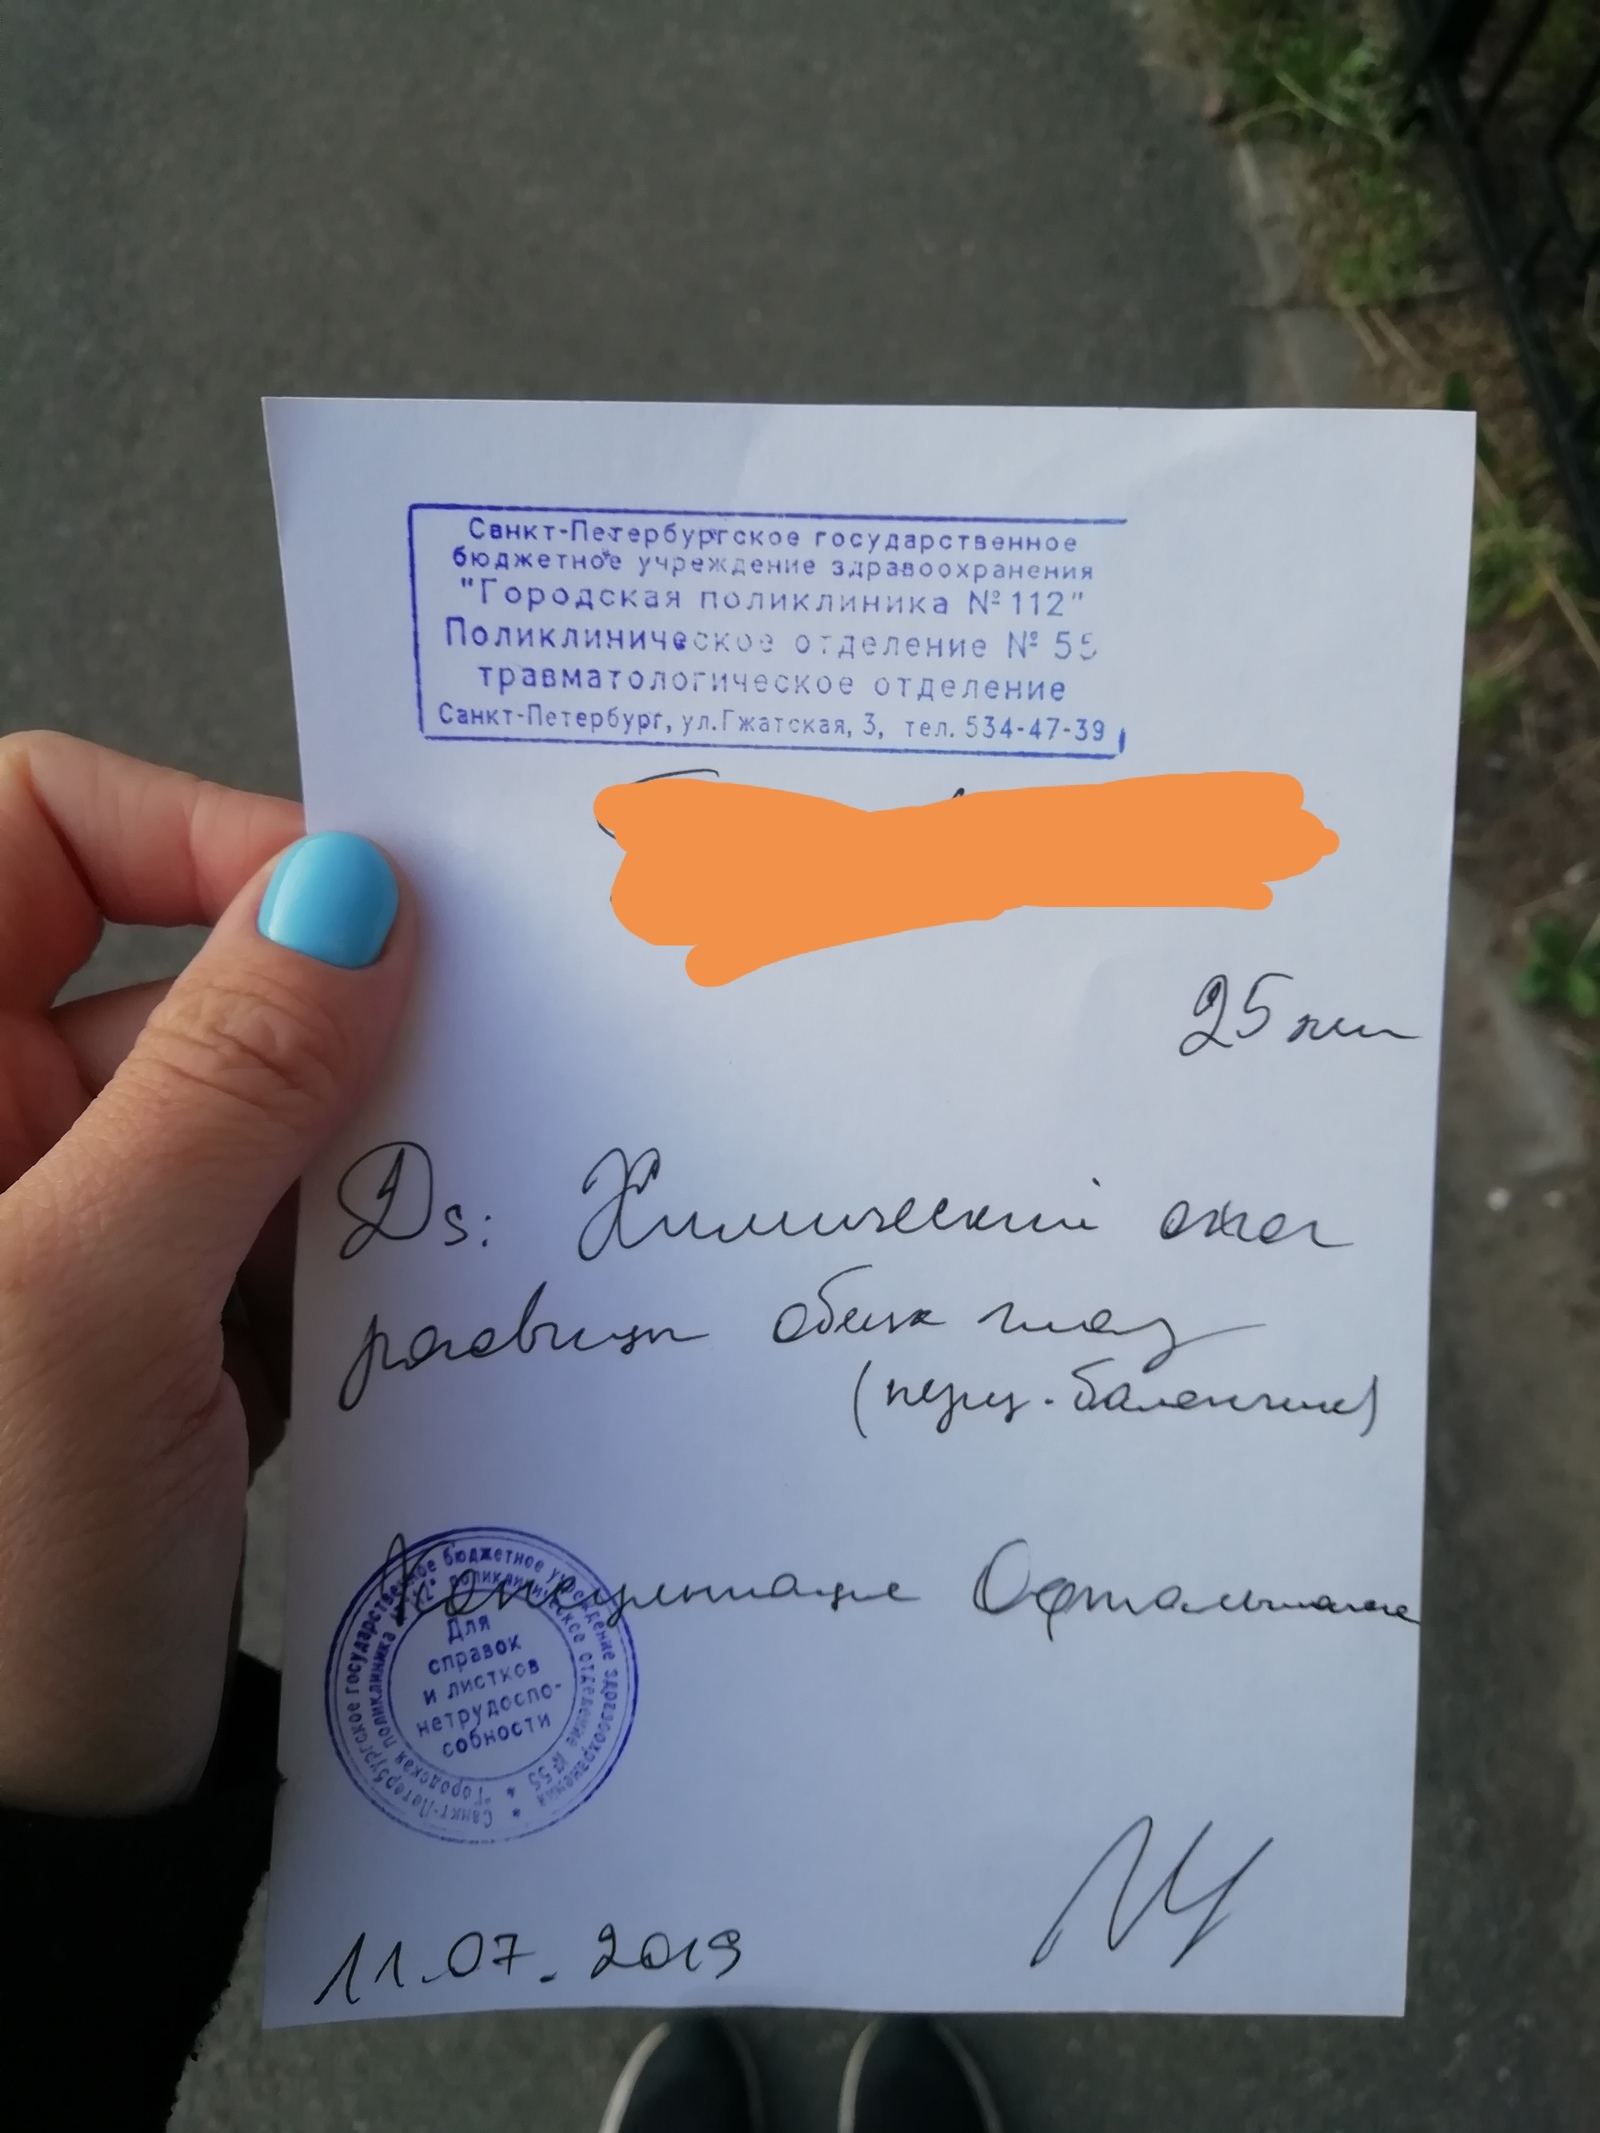 Санкт-Петербургское государственное
бюджетное учреждение здравоохранения
"Городская поликлиника № 112"
Поликлиническое отделение № 55
травматологическое отделение
Санкт-Петербург, ул.Гжатская, 3, тел. 534-47-39
25 лет
Ds: Химический ожог
роговицы обеих глаз
(перц. балончик)
Консультация Офтальмолога
Санкт-Петербургское государственное бюджетное учреждение здравоохранения
"Городская поликлиника №112" поликлиническое отделение №55
Для
справок
и листков
нетрудоспо-
собности
11.07.2019